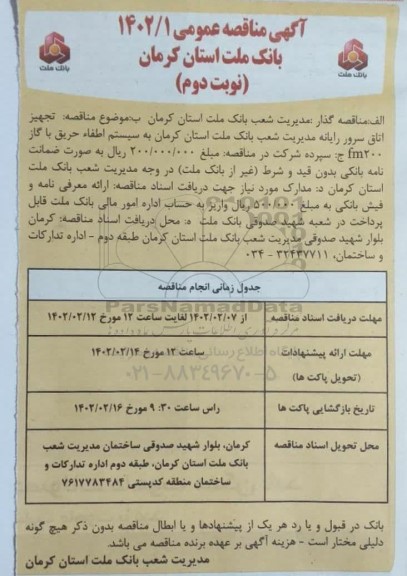 آگهی مناقصه عمومی ۱۴۰۲/۱
بانک ملت استان کرمان
(نوبت دوم)
بانک ملت
بانک ملت
الف:مناقصه گذار :مدیریت شعب بانک ملت استان کرمان ب:موضوع مناقصه: تجهیز
اتاق سرور رایانه مدیریت شعب بانک ملت استان کرمان به سیستم اطفاء حریق با گاز
fm۲۰۰ ج: سپرده شرکت در مناقصه: مبلغ ۲۰۰/۰۰۰/۰۰۰ ریال به صورت ضمانت
نامه بانکی بدون قید و شرط (غیر از بانک ملت) در وجه مدیریت شعب بانک ملت
استان کرمان د: مدارک مورد نیاز جهت دریافت اسناد مناقصه: ارائه معرفی نامه و
فیش بانکی به مبلغ ریال واریز به حساب اداره امور مالی بانک ملت قابل
پرداخت در شعبه شهید صدوقی بانک ملت ه: محل دریافت اسناد مناقصه: کرمان
بلوار شهید صدوقی مدیریت شعب بانک ملت استان کرمان طبقه دوم - اداره تدارکات
و ساختمان، ۳۲۴۳۷۷۱۱ - ۰۳۴
جدول زمانی انجام مناقصه
مهلت دریافت اسناد مناقصه از ۱۴۰۲/۰۲/۰۷ لغایت ساعت ۱۲ مورخ ۱۴۰۲/۰۲/۱۲
ParsNamadData
مهلت ارائه پیشنهادات ساعت ۱۲ مورخ ۱۴۰۲/۰۲/۱۴
(تحویل پاکت ها)
۰۲۱-۸۸۳۴۹۶۷۰-۵
تاریخ بازگشایی پاکت ها راس ساعت ۹:۳۰ مورخ ۱۴۰۲/۰۲/۱۶
محل تحویل اسناد مناقصه کرمان، بلوار شهید صدوقی ساختمان مدیریت شعب
بانک ملت استان کرمان، طبقه دوم اداره تدارکات و
ساختمان منطقه کدپستی ۷۶۱۷۷۸۳۴۸۴
بانک در قبول و یا رد هر یک از پیشنهادها و یا ابطال مناقصه بدون ذکر هیچ گونه
دلیلی مختار است - هزینه آگهی بر عهده برنده مناقصه می باشد.
مدیریت شعب بانک ملت استان کرمان